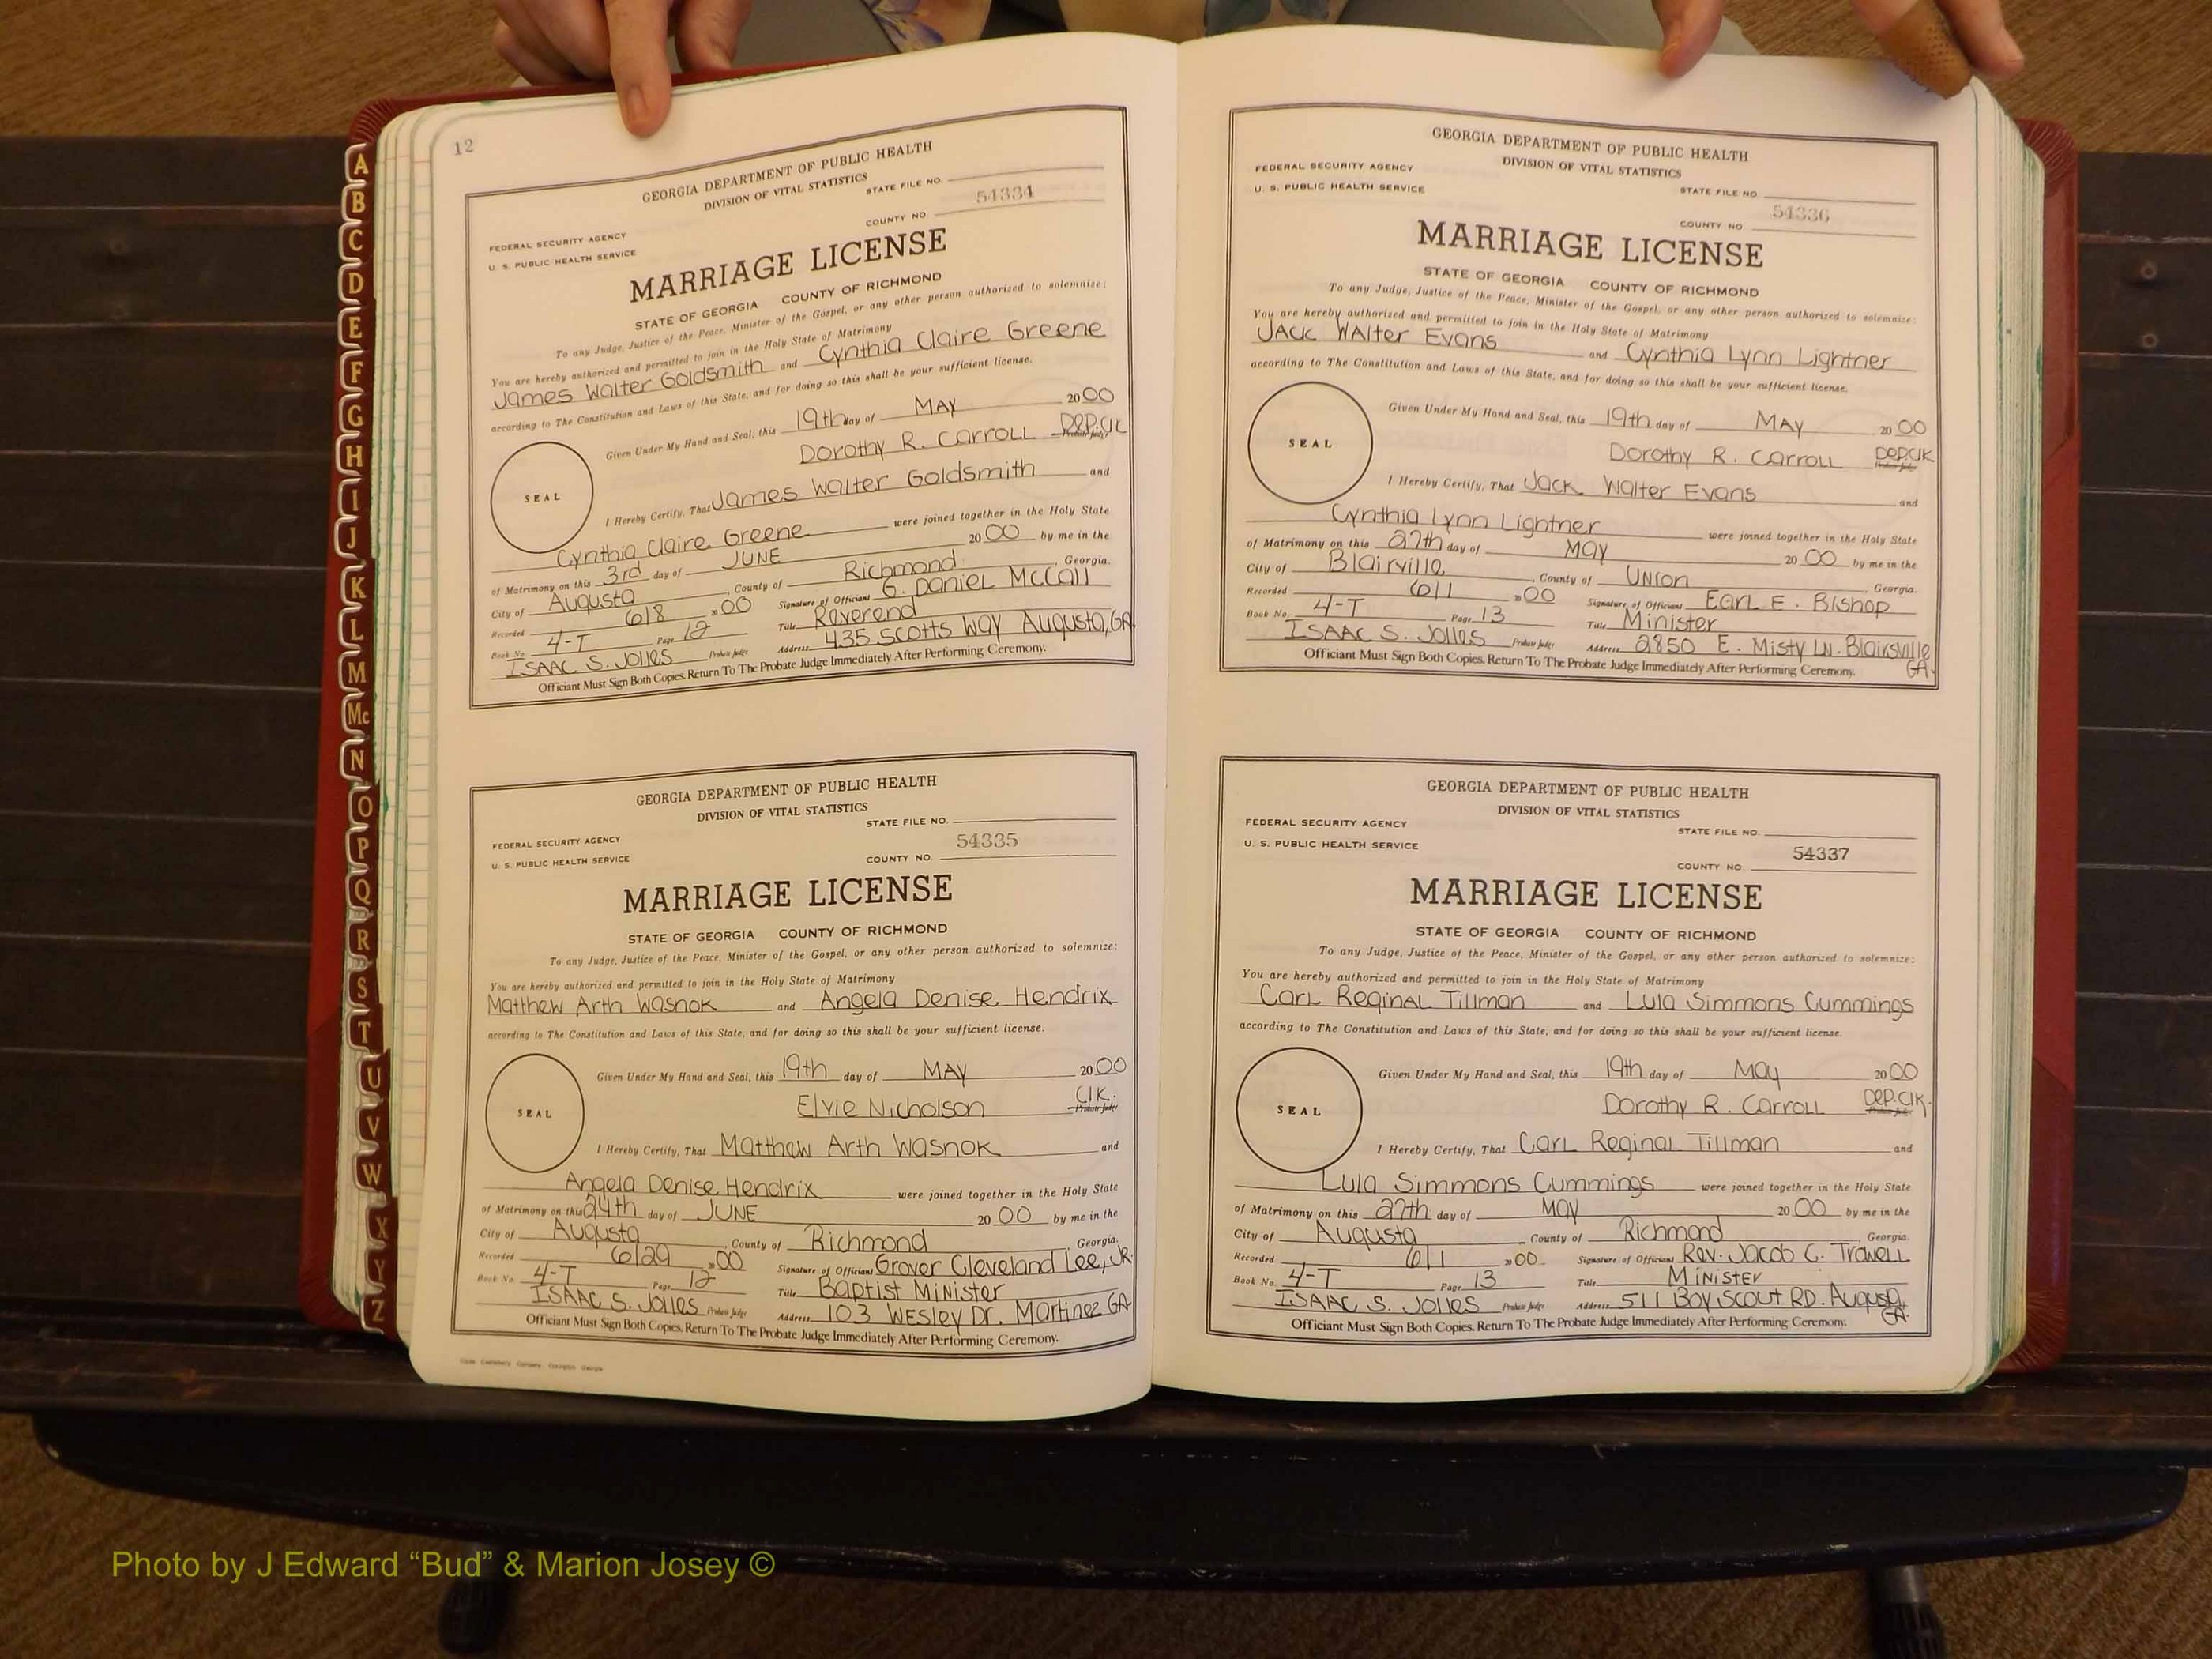 12
GEORGIA DEPARTMENT OF PUBLIC HEALTH
DIVISION OF VITAL STATISTICS
STATE FILE NO.
54334
COUNTY NO.
FEDERAL SECURITY AGENCY
U. S. PUBLIC HEALTH SERVICE
MARRIAGE LICENSE
STATE OF GEORGIA COUNTY OF RICHMOND
To any Judge, Justice of the Peace, Minister of the Gospel, or any other person authorized to solemnize:
You are hereby authorized and permitted to join in the Holy State of Matrimony
James Walter Goldsmith and Cynthia Claire Greene
according to The Constitution and Laws of this State, and for doing so this shall be your sufficient license.
Given Under My Hand and Seal, this 19th day of MAY 2000
Dorothy R. Carroll Dep.Clk Probate Judge
SEAL
I Hereby Certify, That James Walter Goldsmith and
Cynthia Claire Greene were joined together in the Holy State
of Matrimony on this 3rd day of JUNE 20 00 by me in the
City of Augusta, County of Richmond, Georgia.
Recorded 6/8 2000 Signature of Official G. Daniel McCall
Book No. 4-T Page 12 Title Reverend
ISAAC S. Jolles Probate Judge Address 435 Scotts Way Augusta, GA
Officiant Must Sign Both Copies. Return To The Probate Judge Immediately After Performing Ceremony.
GEORGIA DEPARTMENT OF PUBLIC HEALTH
DIVISION OF VITAL STATISTICS
STATE FILE NO.
54335
COUNTY NO.
FEDERAL SECURITY AGENCY
U. S. PUBLIC HEALTH SERVICE
MARRIAGE LICENSE
STATE OF GEORGIA COUNTY OF RICHMOND
To any Judge, Justice of the Peace, Minister of the Gospel, or any other person authorized to solemnize:
You are hereby authorized and permitted to join in the Holy State of Matrimony
Matthew Arth Wasnok and Angela Denise Hendrix
according to The Constitution and Laws of this State, and for doing so this shall be your sufficient license.
Given Under My Hand and Seal, this 19th day of MAY 2000
Elvie Nicholson Clk. Probate Judge
SEAL
I Hereby Certify, That Matthew Arth Wasnok and
Angela Denise Hendrix were joined together in the Holy State
of Matrimony on this 24th day of JUNE 20 00 by me in the
City of Augusta, County of Richmond Georgia.
Recorded 6/29 2000 Signature of Official Grover Cleveland Lee, Jr.
Book No. 4-T Page 12 Title Baptist Minister
ISAAC S. Jolles Probate Judge Address 103 Wesley Dr. Martinez GA
Officiant Must Sign Both Copies. Return To The Probate Judge Immediately After Performing Ceremony.
GEORGIA DEPARTMENT OF PUBLIC HEALTH
DIVISION OF VITAL STATISTICS
FEDERAL SECURITY AGENCY
U. S. PUBLIC HEALTH SERVICE
STATE FILE NO
54336
COUNTY NO.
MARRIAGE LICENSE
STATE OF GEORGIA COUNTY OF RICHMOND
To any Judge, Justice of the Peace, Minister of the Gospel, or any other person authorized to solemnize:
You are hereby authorized and permitted to join in the Holy State of Matrimony
Jack Walter Evans and Cynthia Lynn Lightner
according to The Constitution and Laws of this State, and for doing so this shall be your sufficient license.
Given Under My Hand and Seal, this 19th day of MAY 2000
Dorothy R. Carroll Dep.Clk Probate Judge
SEAL
I Hereby Certify, That Jack Walter Evans and
Cynthia Lynn Lightner were joined together in the Holy State
of Matrimony on this 27th day of May 20 00 by me in the
City of Blairville, County of Union, Georgia.
Recorded 6/1 2000 Signature of Official Earl E. Bishop
Book No. 4-T Page 13 Title Minister
ISAAC S. Jolles Probate Judge Address 2850 E. Misty Ln. Blairsville GA.
Officiant Must Sign Both Copies. Return To The Probate Judge Immediately After Performing Ceremony.
GEORGIA DEPARTMENT OF PUBLIC HEALTH
DIVISION OF VITAL STATISTICS
FEDERAL SECURITY AGENCY
U. S. PUBLIC HEALTH SERVICE
STATE FILE NO.
54337
COUNTY NO.
MARRIAGE LICENSE
STATE OF GEORGIA COUNTY OF RICHMOND
To any Judge, Justice of the Peace, Minister of the Gospel, or any other person authorized to solemnize:
You are hereby authorized and permitted to join in the Holy State of Matrimony
Carl Reginal Tillman and Lula Simmons Cummings
according to The Constitution and Laws of this State, and for doing so this shall be your sufficient license.
Given Under My Hand and Seal, this 19th day of May 2000
Dorothy R. Carroll Dep.Clk. Probate Judge
SEAL
I Hereby Certify, That Carl Reginal Tillman and
Lula Simmons Cummings were joined together in the Holy State
of Matrimony on this 27th day of May 20 00 by me in the
City of Augusta, County of Richmond, Georgia.
Recorded 6/1 2000 Signature of Official Rev. Jacob C. Trowell
Book No. 4-T Page 13 Title Minister
ISAAC S. Jolles Probate Judge Address 511 Boy Scout RD. Augusta, GA.
Officiant Must Sign Both Copies. Return To The Probate Judge Immediately After Performing Ceremony.
A
B
C
D
E
F
G
H
I
J
K
L
M
Mc
N
O
P
Q
R
S
T
U
V
W
X
Y
Z
Photo by J Edward “Bud” & Marion Josey ©